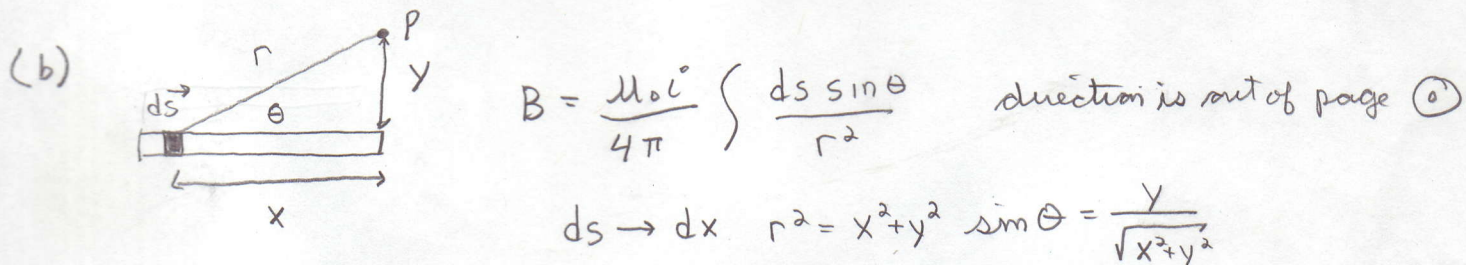 (b)
P
r
y
ds⃗
θ
x
B = μ₀i / 4π ∫ ds sin θ / r² direction is out of page ⊙
ds → dx r² = x² + y² sin θ = y / √(x² + y²)